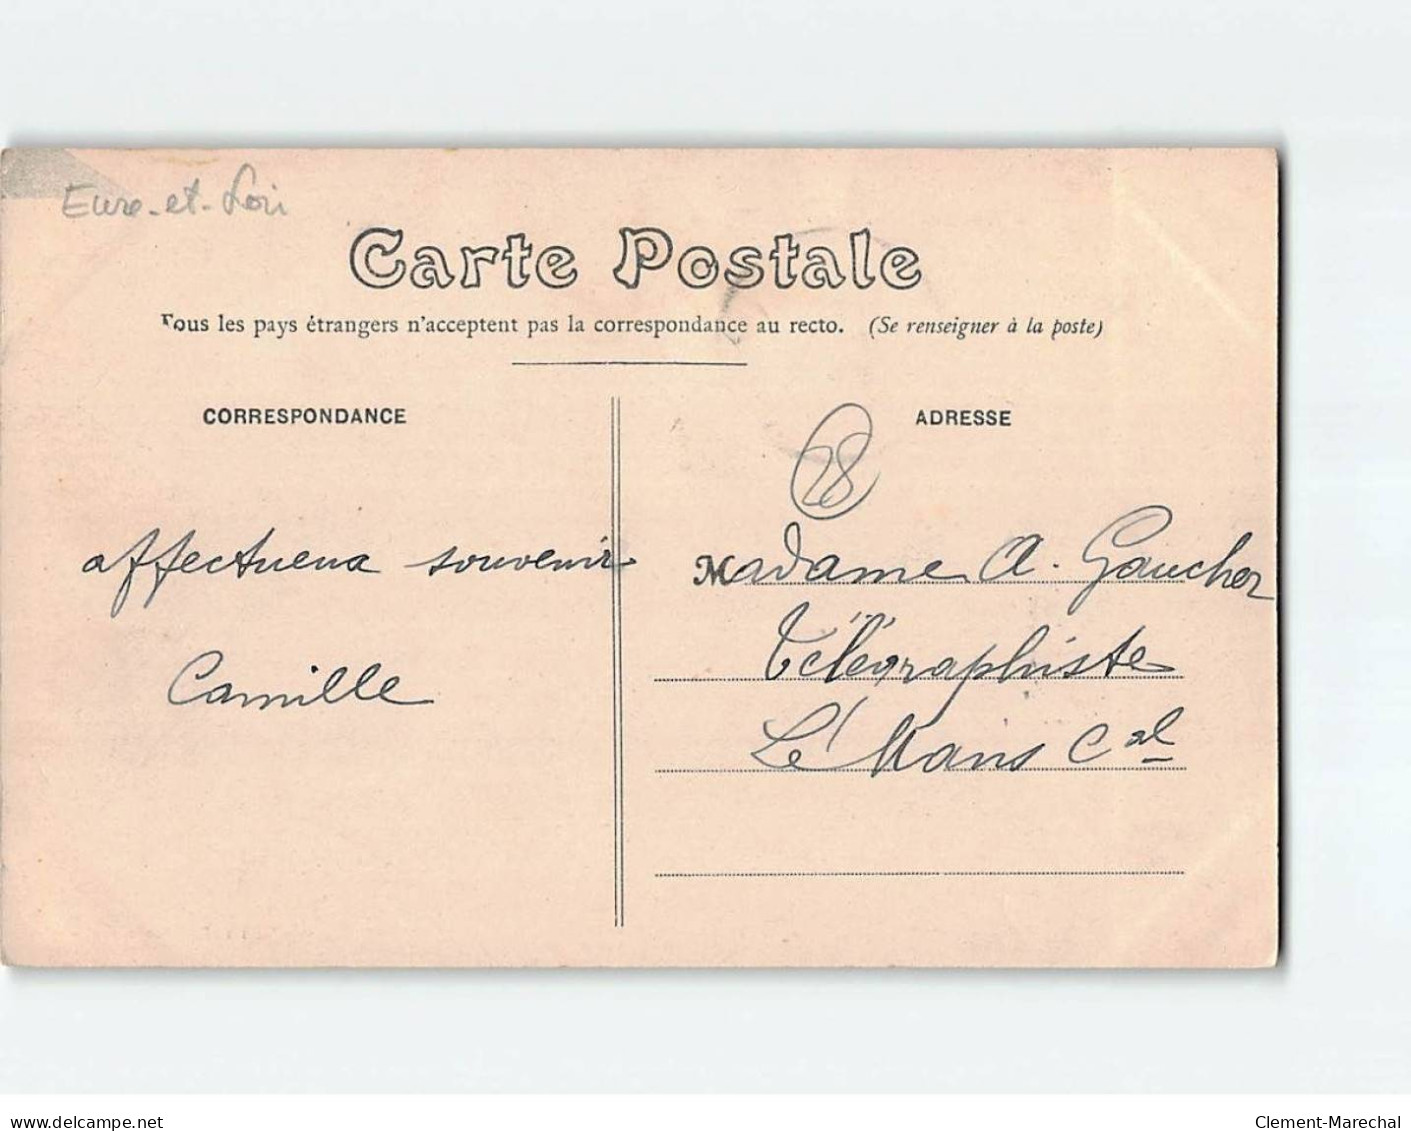 Eure-et-Loir
Carte Postale
Tous les pays étrangers n'acceptent pas la correspondance au recto. (Se renseigner à la poste)
CORRESPONDANCE
ADRESSE
28
affectueux souvenir
Camille
Madame A. Gaucher
Télégraphiste
Le Mans Cal
www.delcampe.net
Clement-Marechal